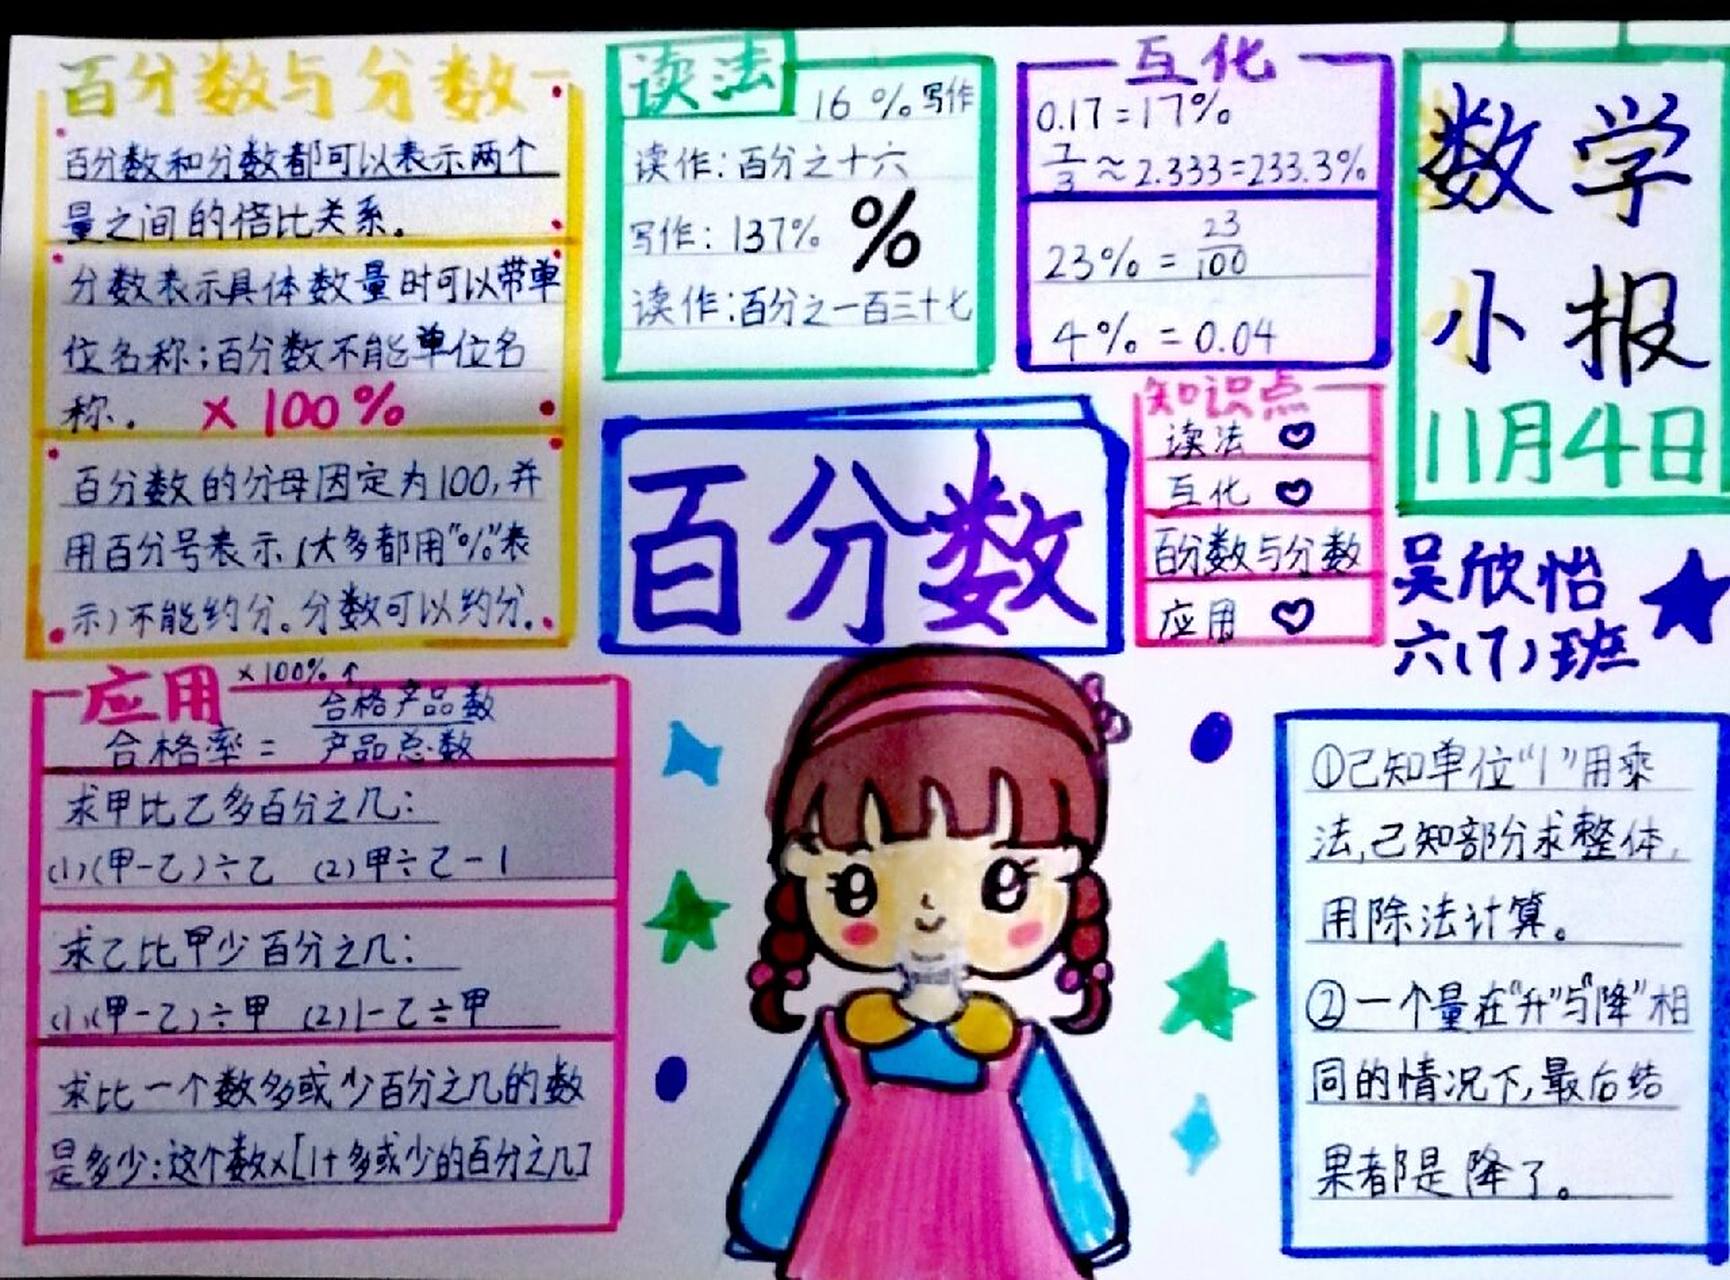 百分数与分数
百分数和分数都可以表示两个
量之间的倍比关系。
分数表示具体数量时可以带单
位名称；百分数不能单位名
称. ×100%
百分数的分母因定为100,并
用百分号表示（大多都用"%"表
示）不能约分。分数可以约分.
读法
16% 写作
读作：百分之十六
写作：137% %
读作：百分之一百三十七
互化
0.17=17%
7/3≈2.333=233.3%
23%=23/100
4%=0.04
数学
小报
11月4日
百分数
知识点
读法
互化
百分数与分数
应用
吴欣怡
六(7)班
应用 ×100%↑
合格率=合格产品数/产品总数
求甲比乙多百分之几：
(1)(甲-乙)÷乙 (2)甲÷乙-1
求乙比甲少百分之几：
(1)(甲-乙)÷甲 (2)1-乙÷甲
求比一个数多或少百分之几的数
是多少：这个数×[1+多或少的百分之几]
①已知单位"1"用乘
法,已知部分求整体,
用除法计算。
②一个量在"升"与"降"相
同的情况下,最后结
果都是降了。